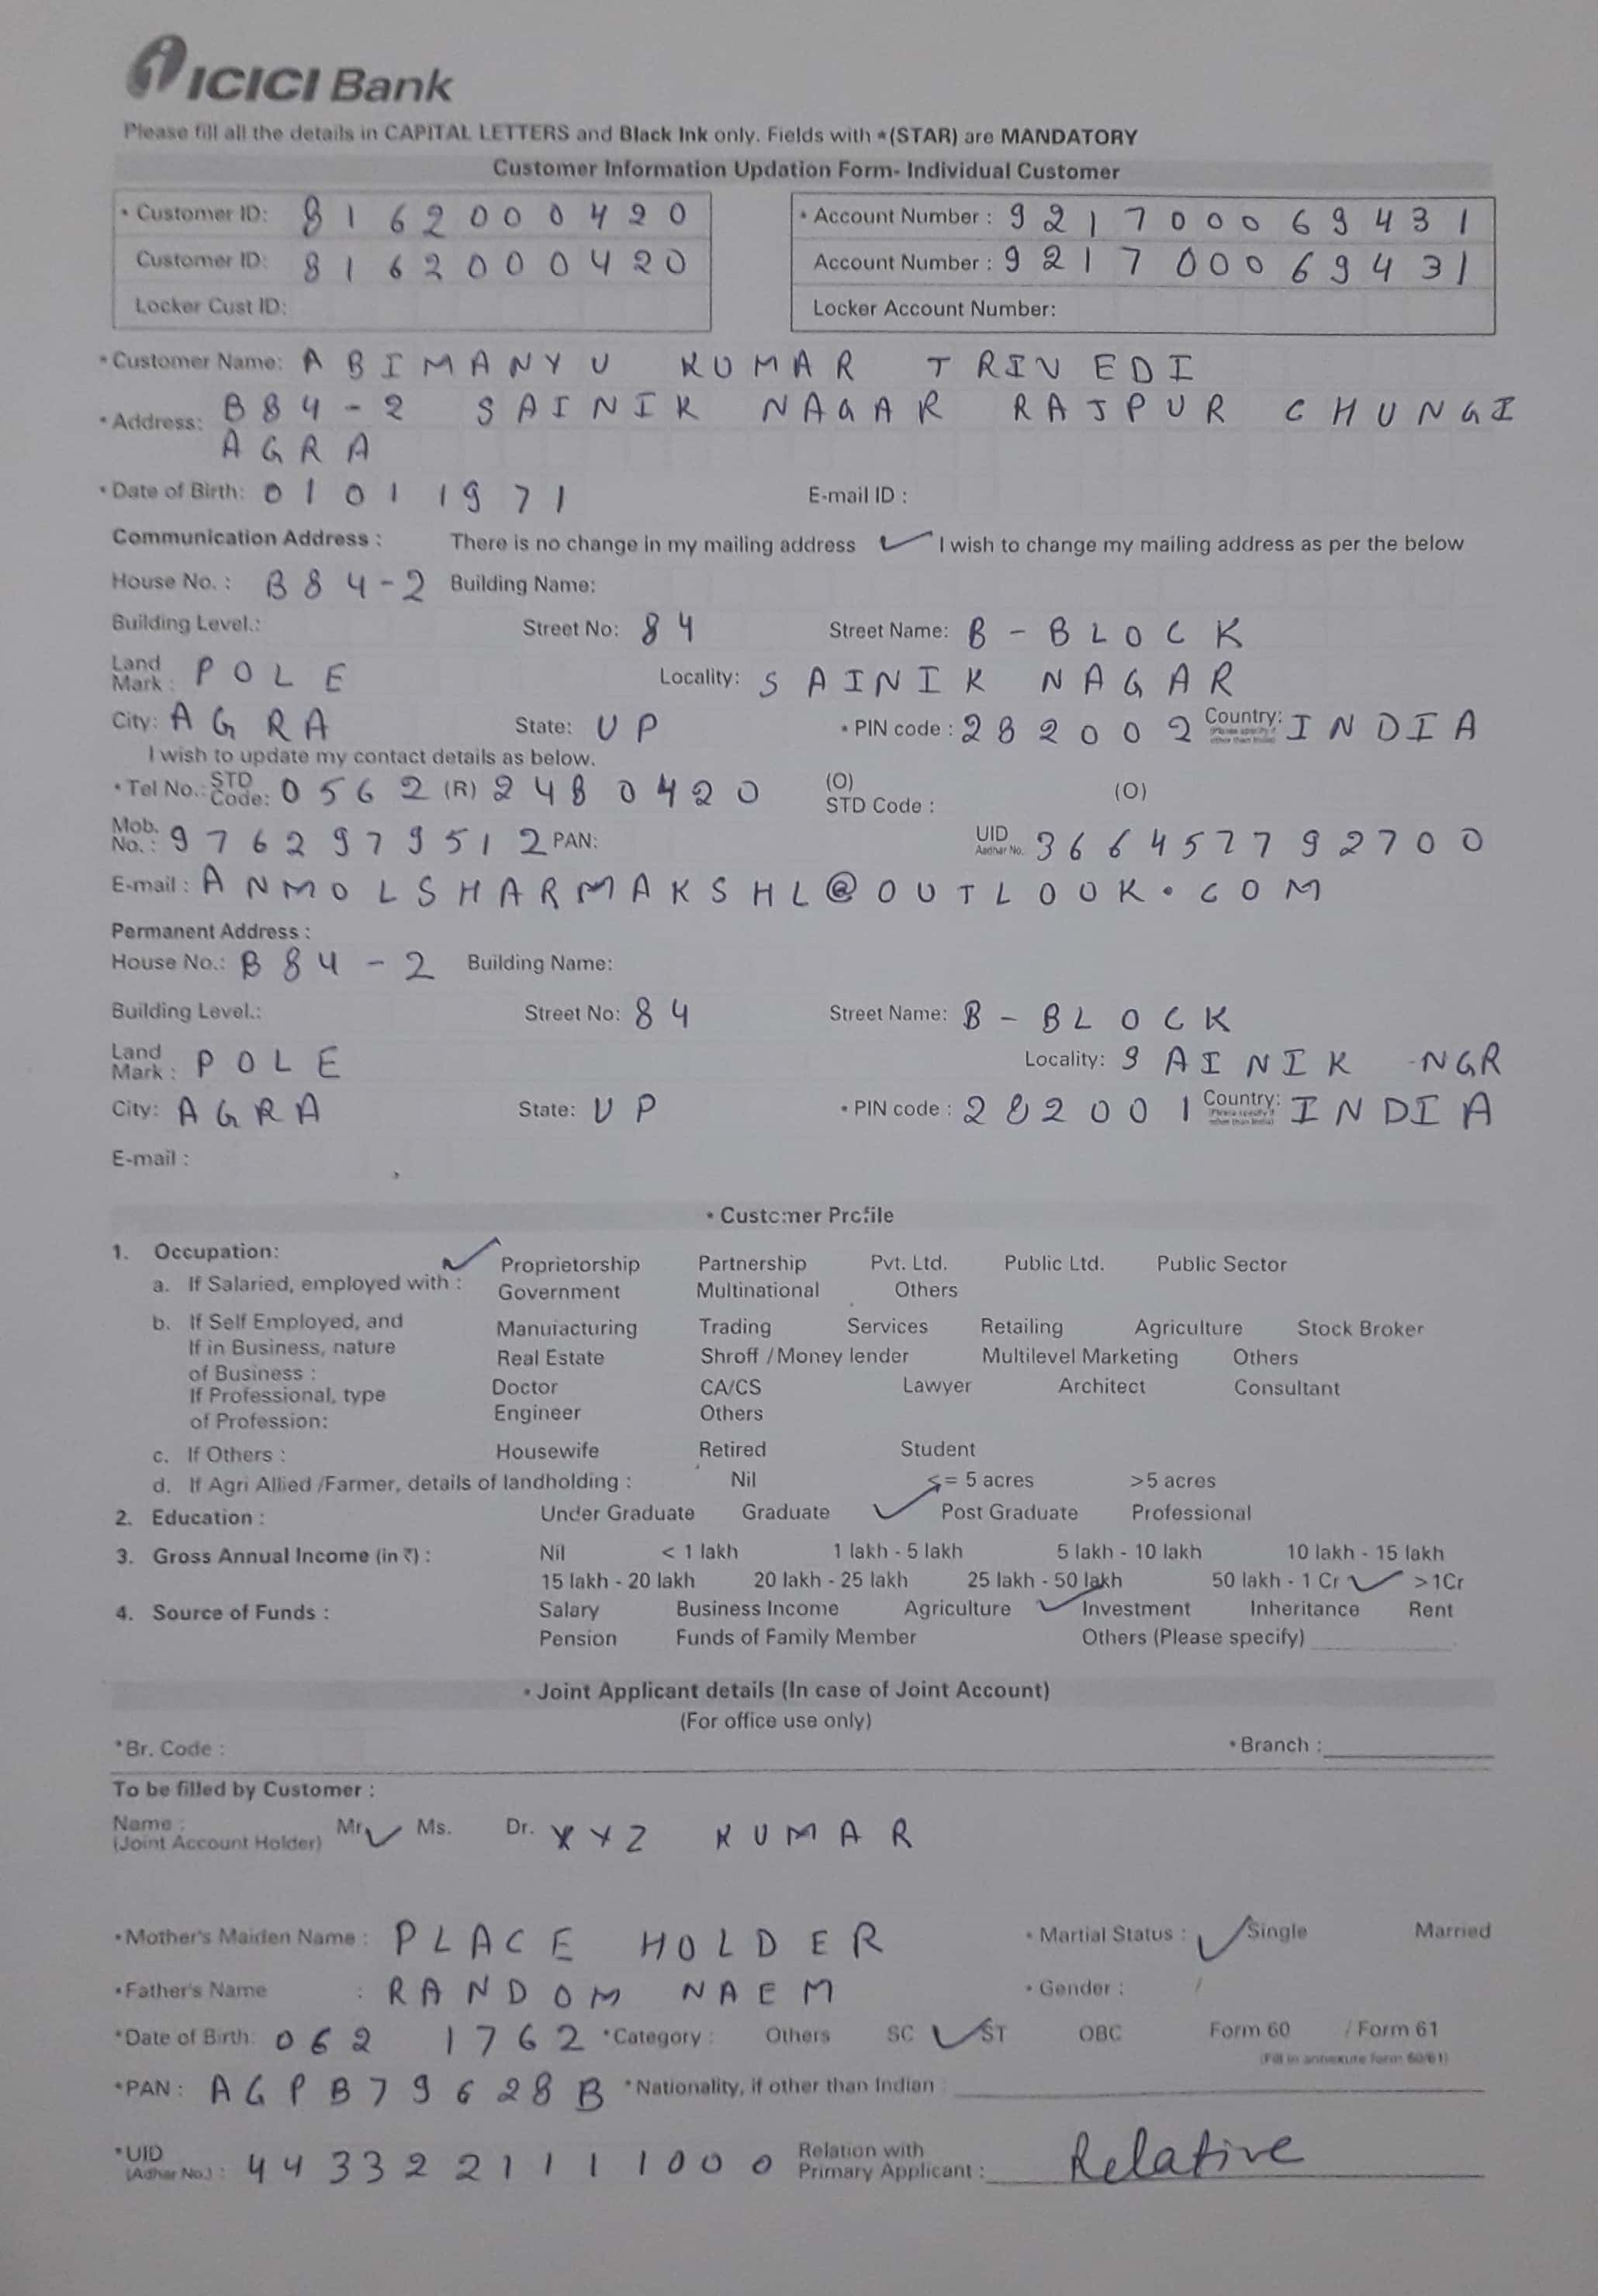 ICICI Bank
Please fill all the details in CAPITAL LETTERS and Black Ink only. Fields with *(STAR) are MANDATORY
Customer Information Updation Form- Individual Customer
* Customer ID: 8162000420 * Account Number : 921700069431
Customer ID: 8162000420 Account Number : 921700069431
Locker Cust ID: Locker Account Number:
* Customer Name: ABIMANYU KUMAR TRIVEDI
* Address: B84-2 SAINIK NAGAR RAJPUR CHUNGI
AGRA
* Date of Birth: 01011971 E-mail ID :
Communication Address : There is no change in my mailing address ✓ I wish to change my mailing address as per the below
House No. : B84-2 Building Name:
Building Level.: Street No: 84 Street Name: B-BLOCK
Land Mark : POLE Locality: SAINIK NAGAR
City: AGRA State: UP * PIN code : 282002 Country: (Please specify if other than India) INDIA
I wish to update my contact details as below.
* Tel No.: STD Code: 0562 (R) 2480420 (O) STD Code : (O)
Mob. No. : 9762979512 PAN: UID Aadhar No. 366457792700
E-mail : ANMOLSHARMAKSHL@OUTLOOK.COM
Permanent Address :
House No.: B84-2 Building Name:
Building Level.: Street No: 84 Street Name: B-BLOCK
Land Mark : POLE Locality: SAINIK NGR
City: AGRA State: UP * PIN code : 282001 Country: (Please specify if other than India) INDIA
E-mail :
* Customer Profile
1. Occupation:
✓ Proprietorship Partnership Pvt. Ltd. Public Ltd. Public Sector
a. If Salaried, employed with : Government Multinational Others
b. If Self Employed, and Manufacturing Trading Services Retailing Agriculture Stock Broker
If in Business, nature Real Estate Shroff /Money lender Multilevel Marketing Others
of Business :
If Professional, type Doctor CA/CS Lawyer Architect Consultant
of Profession: Engineer Others
c. If Others : Housewife Retired Student
d. If Agri Allied /Farmer, details of landholding : Nil <= 5 acres >5 acres
2. Education : Under Graduate Graduate ✓ Post Graduate Professional
3. Gross Annual Income (in ₹) : Nil < 1 lakh 1 lakh - 5 lakh 5 lakh - 10 lakh 10 lakh - 15 lakh
15 lakh - 20 lakh 20 lakh - 25 lakh 25 lakh - 50 lakh 50 lakh - 1 Cr ✓ >1Cr
4. Source of Funds : Salary Business Income Agriculture ✓ Investment Inheritance Rent
Pension Funds of Family Member Others (Please specify)
* Joint Applicant details (In case of Joint Account)
(For office use only)
*Br. Code : * Branch :
To be filled by Customer :
Name : (Joint Account Holder) Mr ✓ Ms. Dr. XYZ KUMAR
* Mother's Maiden Name : PLACE HOLDER * Martial Status : ✓ Single Married
* Father's Name : RANDOM NAEM * Gender : /
*Date of Birth: 062 1762 *Category : Others SC ✓ ST OBC Form 60 / Form 61
(Fill in annexure form 60/61)
*PAN : AGPB79628B *Nationality, if other than Indian
*UID (Adhar No.) : 4433221111000 Relation with Primary Applicant : Relative